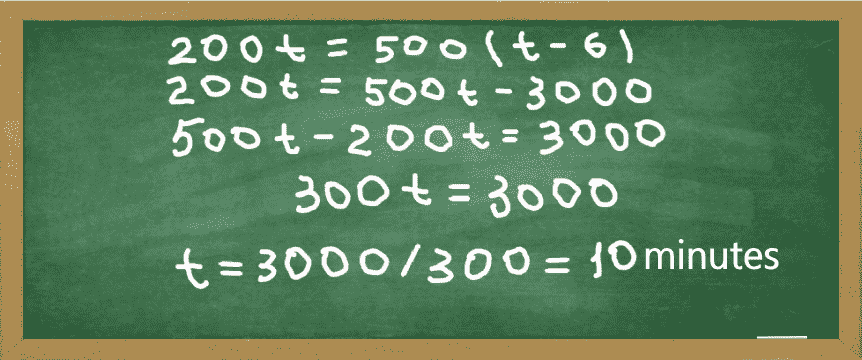 200t = 500(t-6)
200t = 500t - 3000
500t - 200t = 3000
300t = 3000
t = 3000/300 = 10 minutes